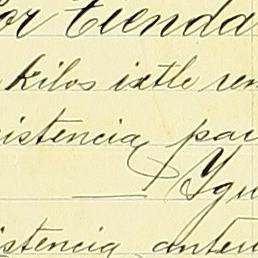 or tienda
kilos ixtle ren
istencia par
Ygu
istencia anteri